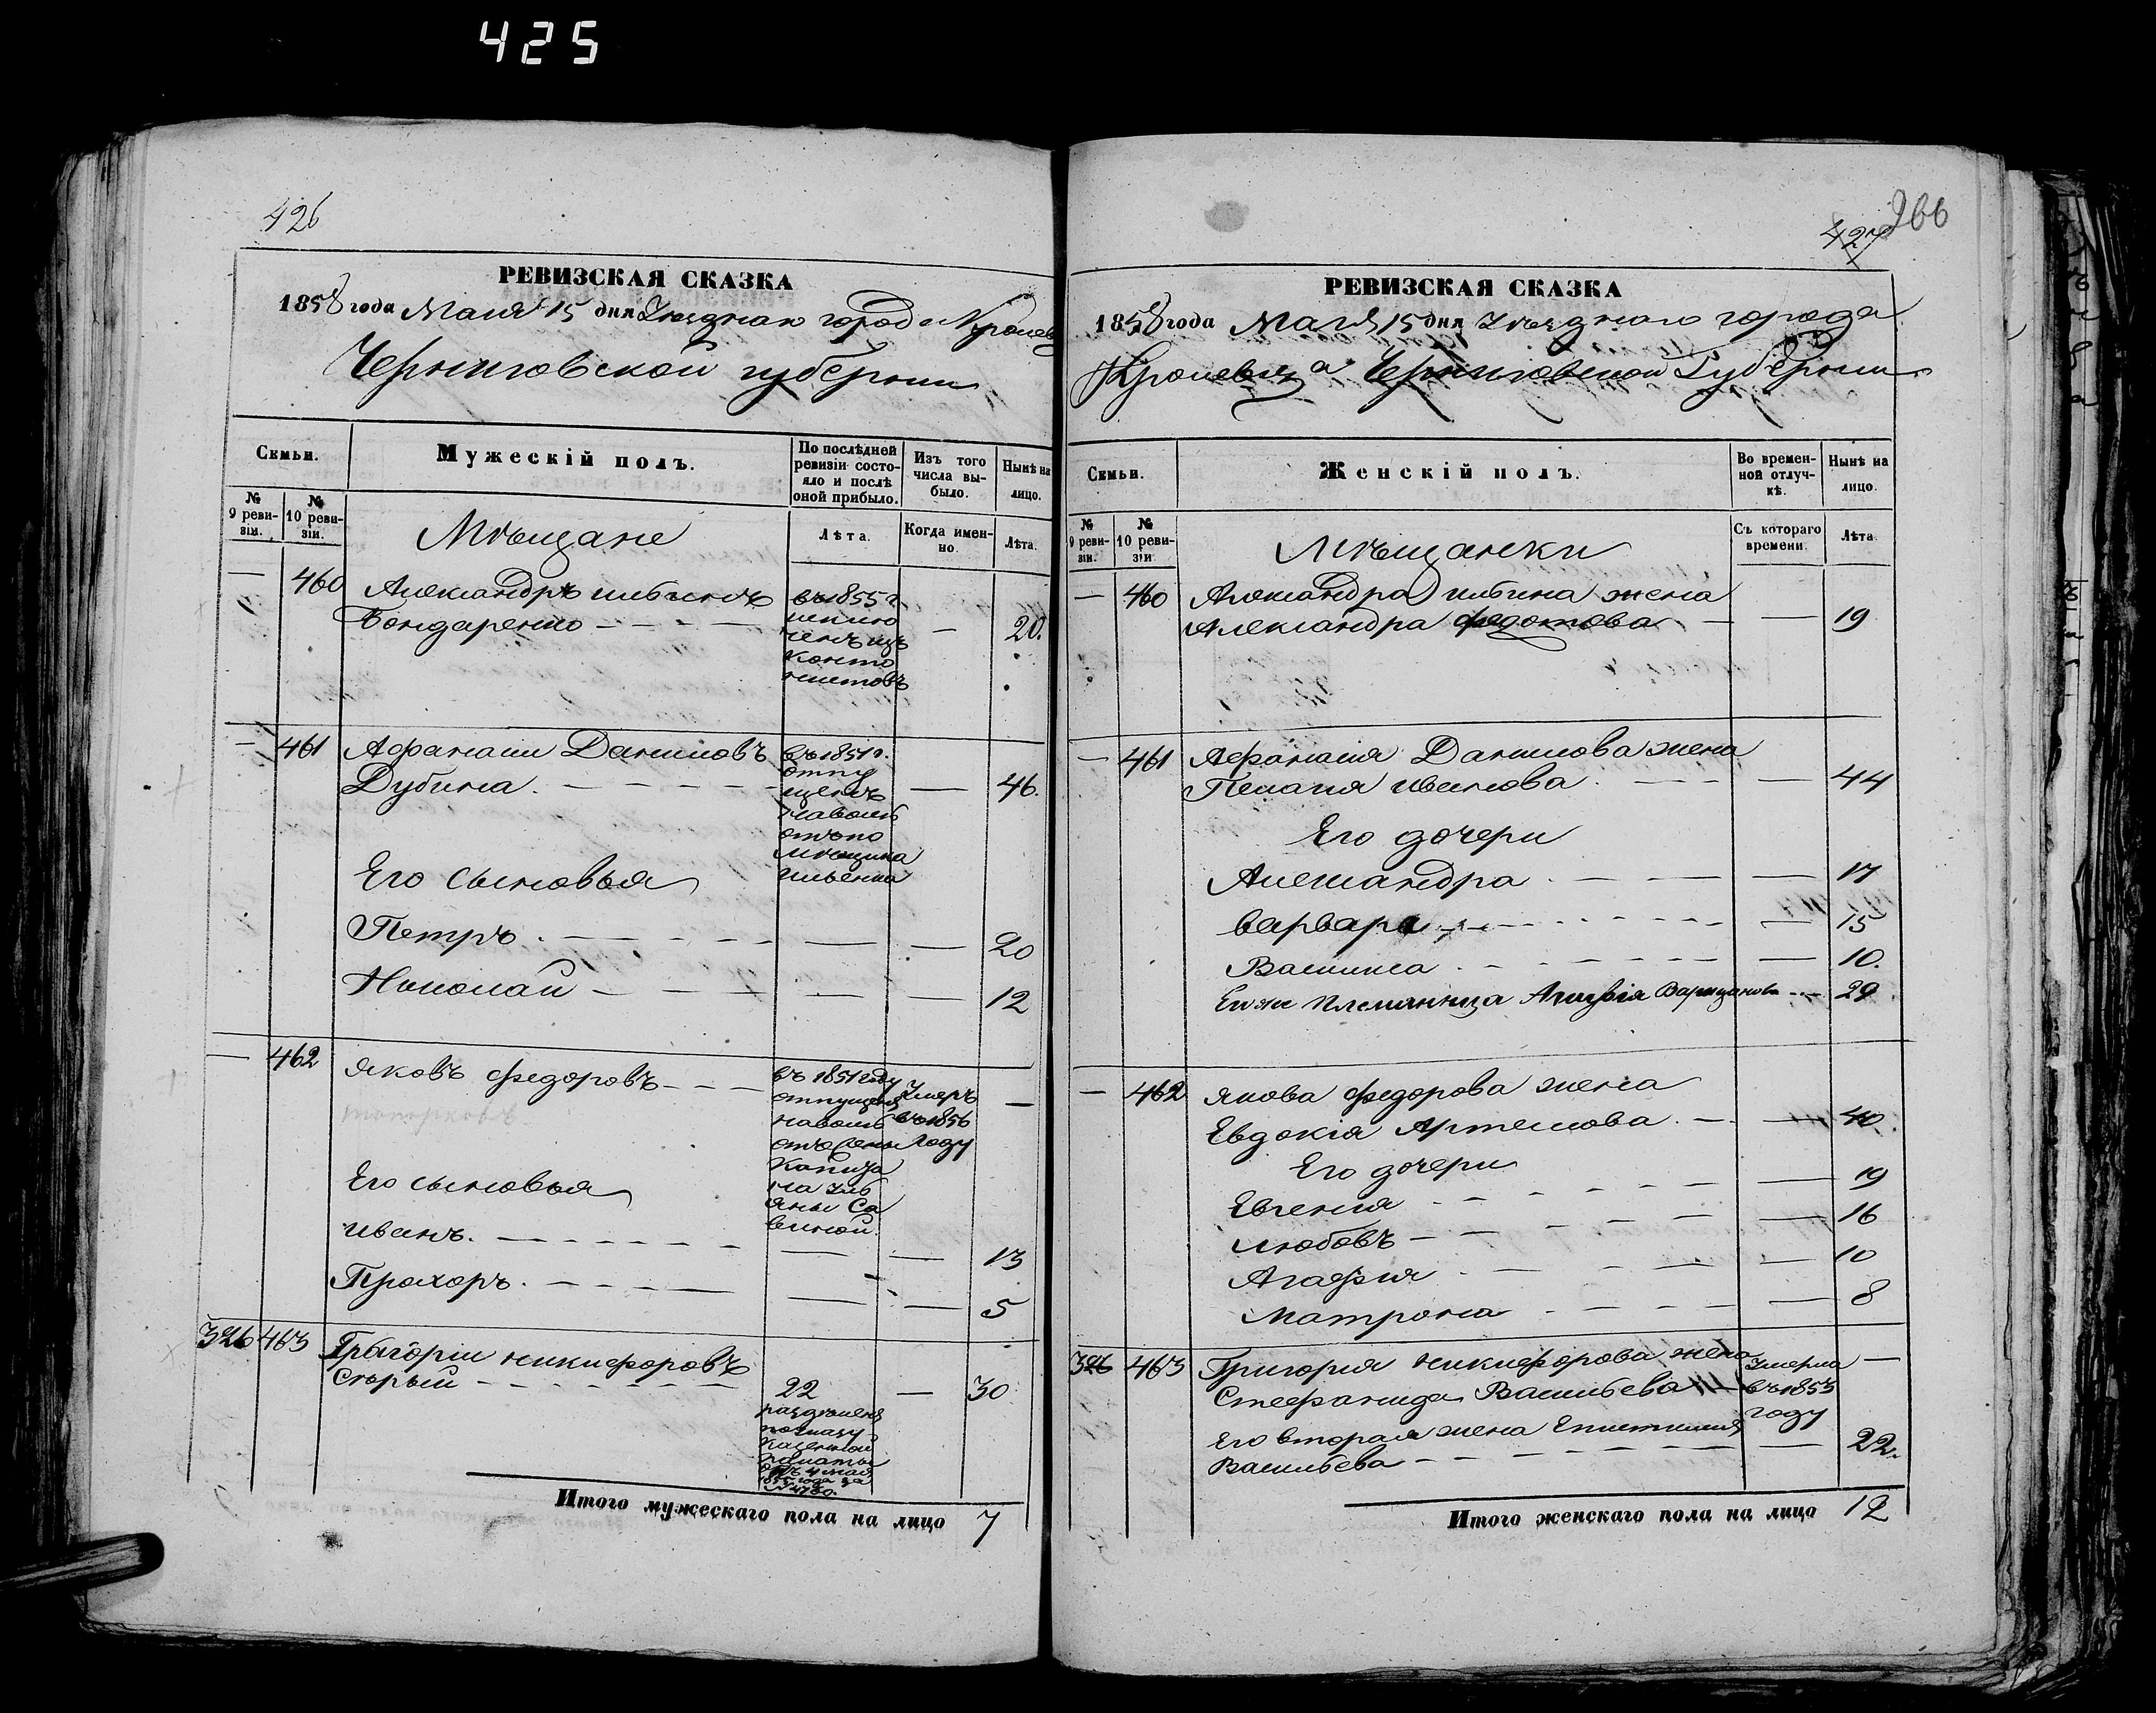 425
426
РЕВИЗСКАЯ СКАЗКА
1858 года Маія 15 дня Уѣзднаго города Кролев
Черниговской губерніи
Семьи.
Мужескій полъ.
По послѣдней ревизіи состояло и послѣ оной прибыло.
Изъ того числа выбыло.
Нынѣ на лицо.
№ 9 ревизіи.
№ 10 ревизіи.
Мѣщане
Лѣта.
Когда именно.
Лѣта.
— 460 Александръ ильинъ въ 1855 г.
Бондаренко — исклю — 20.
ченъ изъ
канто
нистовъ
— 461 Афанасіи Даниловъ въ 1851 г.
Дубина — отпу — 46.
щенъ
наволю
отъ по
мѣщика
ильенка
Его сыновья
Петръ — — — 20
Николай — — — 12
— 462 Яковъ федоровъ — въ 1851 году Умеръ —
отпущенъ въ 1856
наволю году
отъ
Капита
на
яны Са
виной.
Его сыновья
иванъ. — — — 13
Прохоръ. — — — 5
326 463 Григоріи никифоровъ
Старый — 22 — 30
раздѣленъ
по указу
казенной
палаты
отъ 4 мая
1855 года за
Итого мужескаго пола на лицо 7
427
266
РЕВИЗСКАЯ СКАЗКА
1858 года Маія 15 дня Уѣзднаго города
Кролевца Черниговской Губерніи
Семьи.
Женскій полъ.
Во временной отлучкѣ.
Нынѣ на лицо.
№ 9 ревизіи.
№ 10 ревизіи
Мѣщанки
Съ котораго времени.
Лѣта.
— 460 Александра ильина жена
Александра федотова — — 19
— 461 Афанасія Данилова жена
Пелагия иванова — — 44
Его дочери
Александра — — 17
варвара — — 15
Василиса — — 10.
Его же племянница — 29
— 462 Якова федорова жена
Евдокія Артемова — — 40
Его дочери
Евгенія — — 19
любовь — — 16
Агафия — — 10
Матрона — — 8
326 463 Григория никифорова жена Умерла —
Стефанида Васильева — въ 1853
году
Его вторая жена Епистимия
Васильева — — 22.
Итого женскаго пола на лицо 12